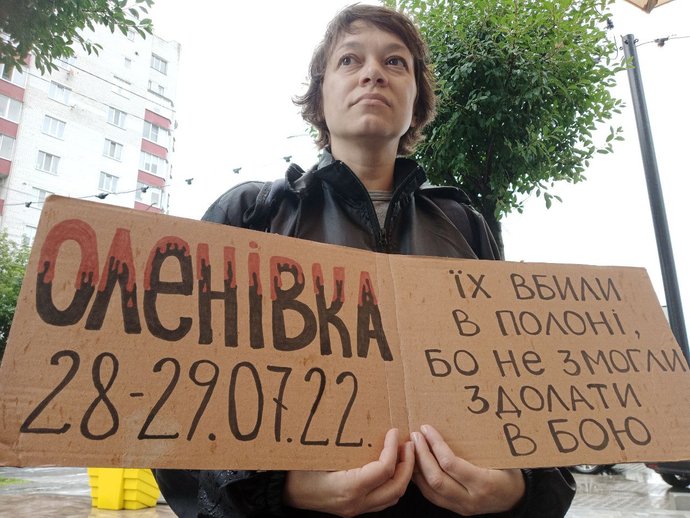 ОЛЕНІВКА
28-29.07.22.
ЇХ ВБИЛИ
В ПОЛОНІ,
БО НЕ ЗМОГЛИ
ЗДОЛАТИ
В БОЮ